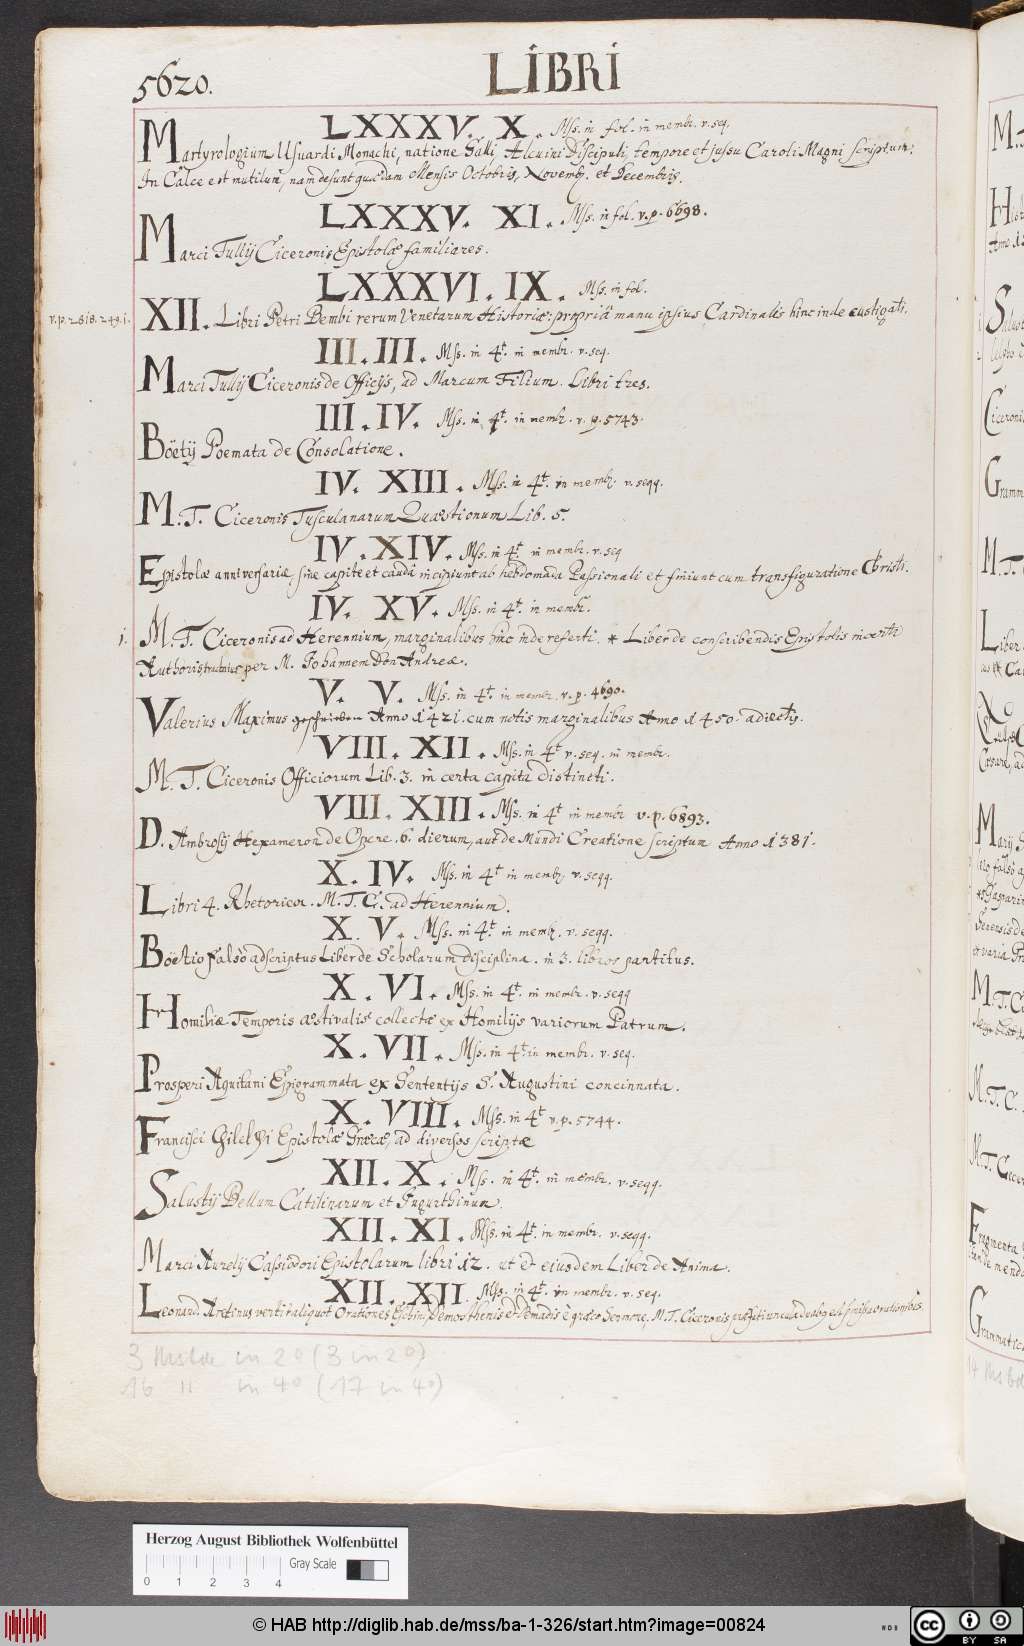 5620.
LIBRI
LXXXV. X. Mss. in fol. in membr. v. seq.
Martyrologium Usuardi Monachi, natione Galli, Alcuini Discipuli, tempore et jussu Caroli Magni scriptum.
In Calce est mutilum, nam desunt quædam Mensis Octobris, Novemb. et Decembris.
LXXXV. XI. Mss. in fol. v. p. 6698.
Marci Tullij Ciceronis Epistolæ familiares.
LXXXVI. IX. Mss. in fol.
v. p. 2818. 249. 1.
XII. Libri Petri Bembi rerum Venetarum Historiæ: propriâ manu ipsius Cardinalis hinc inde castigati.
III. III. Mss. in 4t. in membr. v. seq.
Marci Tullij Ciceronis de Officijs, ad Marcum Filium. Libri tres.
III. IV. Mss. in 4t. in membr. v. p. 5743.
Boëtij Poemata de Consolatione.
IV. XIII. Mss. in 4t. in membr. v. seqq.
M. T. Ciceronis Tusculanarum Quæstionum Lib. 5.
IV. XIV. Mss. in 4t. in membr. v. seq
Epistolæ anniversariæ, sine capite et caudâ incipiunt ab hebdomada Passionali et finiunt cum transfiguratione Christi.
IV. XV. Mss. in 4t. in membr.
1.
M. T. Ciceronis ad Herennium, marginalibus hinc inde referti. * Liber de conscribendis Epistolis incerti
Authoris, per M. Johannem Don Andreæ.
V. V. Mss. in 4t. in membr. v. p. 4690.
Valerius Maximus geschrieben Anno 1421. cum notis marginalibus Anno 1450. adiectis.
VIII. XII. Mss. in 4t v. seq. in membr.
M. T. Ciceronis Officiorum Lib. 3. in certa capita distincti.
VIII. XIII. Mss. in 4t in membr v. p. 6893.
D. Ambrosij Hexameron de Opere. 6. dierum, aut de Mundi Creatione scriptum Anno 1381.
X. IV. Mss. in 4t in membr. v. seqq.
Libri 4. Rhetoricor. M. T. C. ad Herennium.
X. V. Mss. in 4t. in membr. v. seqq.
Boëtio falsò adscriptus Liber de Scholarum disciplina. in 3. libros partitus.
X. VI. Mss. in 4t. in membr. v. seqq
Homiliæ Temporis æstivalis collectæ ex Homilijs variorum Patrum.
X. VII. Mss. in 4t. in membr. v. seq.
Prosperi Aquitani Epigrammata ex Sententijs S. Augustini concinnata.
X. VIII. Mss. in 4t v. p. 5744.
Francisci Philelphi Epistolæ Græcæ, ad diversos scriptæ
XII. X. Mss. in 4t. in membr. v. seqq.
Salustij Bellum Catilinarum et Jugurthinum
XII. XI. Mss. in 4t. in membr. v. seqq.
Marci Aurelij Cassiodori Epistolarum libri 12. ut et eiusdem Liber de Anima.
XII. XII. Mss. in 4t. in membr. v. seq.
Leonard. Aretinus vertit aliquot Orationes Demosthenis et Demadis è græco Sermone, M. T. Ciceronis
3 in 2° (3 in 2°)
16 " in 4° (17 in 4°)
Herzog August Bibliothek Wolfenbüttel
Gray Scale
0 1 2 3 4
© HAB http://diglib.hab.de/mss/ba-1-326/start.htm?image=00824
cc BY SA